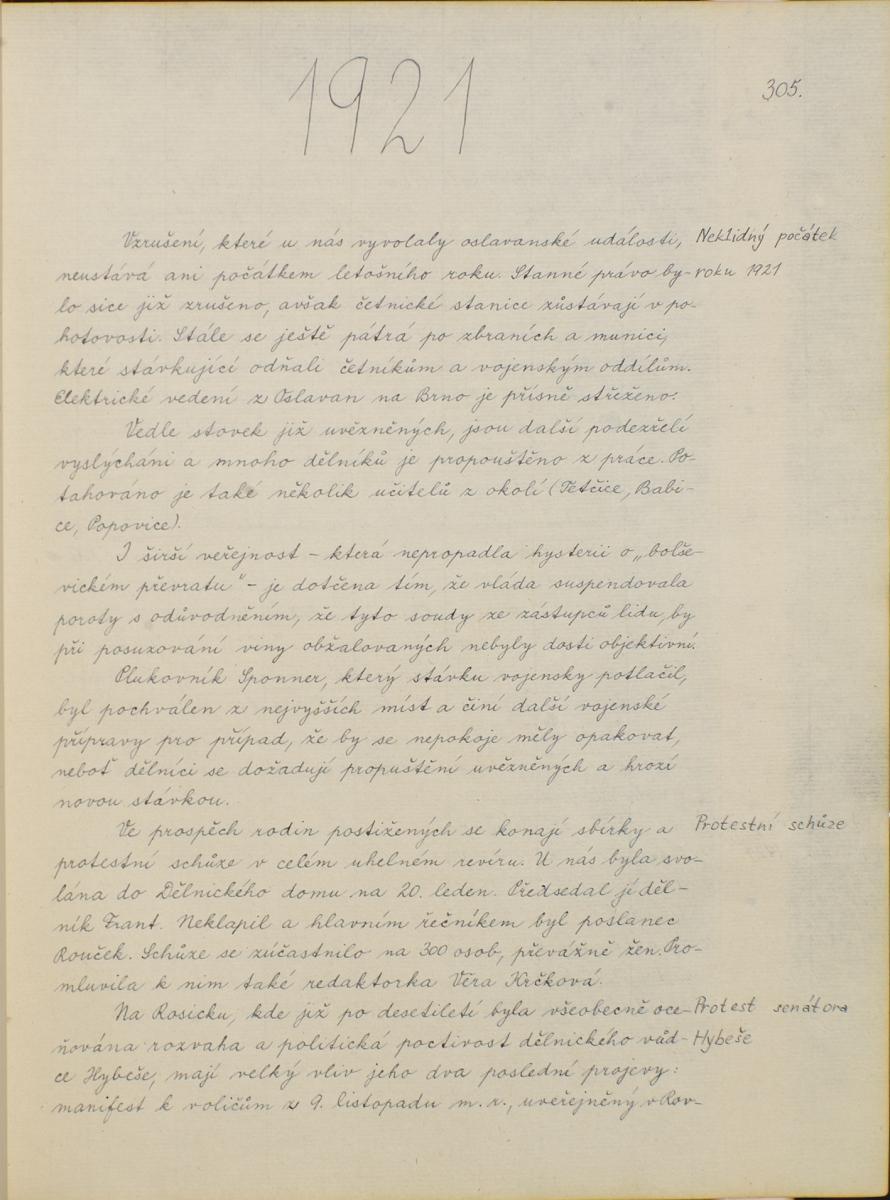 1921
305.
Vzrušení, které u nás vyvolaly oslavanské události, Neklidný počátek
neustává ani počátkem letošního roku. Stanné právo by- roku 1921
lo sice již zrušeno, avšak četnické stanice zůstávají v po-
hotovosti. Stále se ještě pátrá po zbraních a munici,
které stávkující odňali četníkům a vojenským oddílům.
Elektrické vedení z Oslavan na Brno je přísně střeženo.
Vedle stovek již uvězněných, jsou další podezřelí
vyslýcháni a mnoho dělníků je propouštěno z práce. Po-
tahováno je také několik učitelů z okolí (Tetčice, Babi-
ce, Popovice).
I širší veřejnost - která nepropadla hysterii o „bolše-
vickém převratu" - je dotčena tím, že vláda suspendovala
poroty s odůvodněním, že tyto soudy ze zástupců lidu, by
při posuzování viny obžalovaných nebyly dosti objektivní.
Plukovník Sponner, který stávku vojensky potlačil,
byl pochválen z nejvyšších míst a činí další vojenské
přípravy pro případ, že by se nepokoje měly opakovat,
neboť dělníci se dožadují propuštění uvězněných a hrozí
novou stávkou.
Ve prospěch rodin postižených se konají sbírky a Protestní schůze
protestní schůze v celém uhelném revíru. U nás byla svo-
lána do Dělnického domu na 20. leden. Předsedal jí děl-
ník Frant. Neklapil a hlavním řečníkem byl poslanec
Rouček. Schůze se zúčastnilo na 300 osob, převážně žen. Pro-
mluvila k nim také redaktorka Věra Krčková.
Na Rosicku, kde již po desetiletí byla všeobecně oce- Protest senátora
ňována rozvaha a politická poctivost dělnického vůd- Hybeše
ce Hybeše, mají velký vliv jeho dva poslední projevy:
manifest k voličům z 9. listopadu m. r., uveřejněný v Rov-